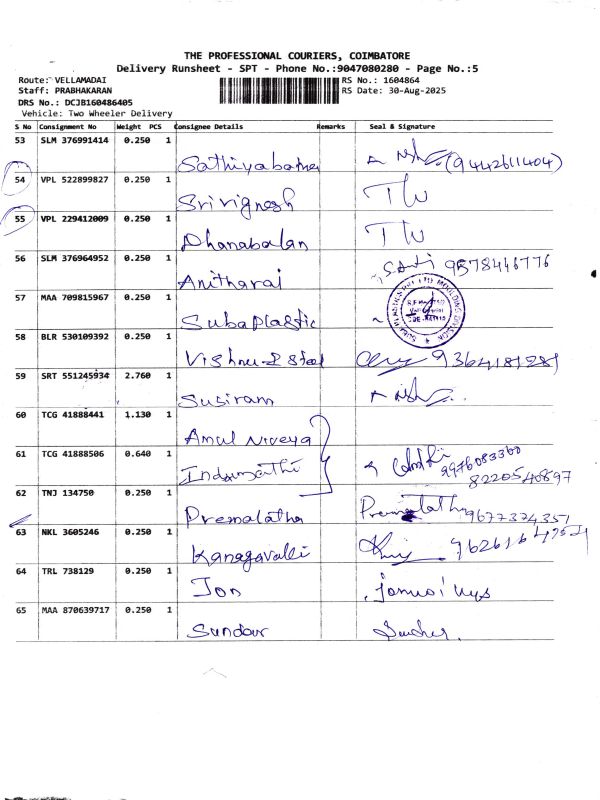 THE PROFESSIONAL COURIERS, COIMBATORE
Delivery Runsheet - SPT - Phone No.:9047080280 - Page No.:5
Route: VELLAMADAI RS No.: 1604864
Staff: PRABHAKARAN RS Date: 30-Aug-2025
DRS No.: DCJB160486405
Vehicle: Two Wheeler Delivery
S No Consignment No Weight PCS Consignee Details Remarks Seal & Signature
53 SLM 376991414 0.250 1 (9442611404)
54 VPL 522899827 0.250 1 Srivignesh
55 VPL 229412009 0.250 1 Dhanabalan
56 SLM 376964952 0.250 1 Anitharaj 9578446776
57 MAA 709815967 0.250 1 Subaplastic
58 BLR 530109392 0.250 1 Vishnu 9364181281
59 SRT 551245934 2.760 1 Susiram
60 TCG 41888441 1.130 1 Amul
61 TCG 41888506 0.640 1 Indumathi 9976083360
62 TNJ 134750 0.250 1 Premalatha 9677374351
63 NKL 3605246 0.250 1 Kanagavalli
64 TRL 738129 0.250 1 Jon
65 MAA 870639717 0.250 1 Sundar